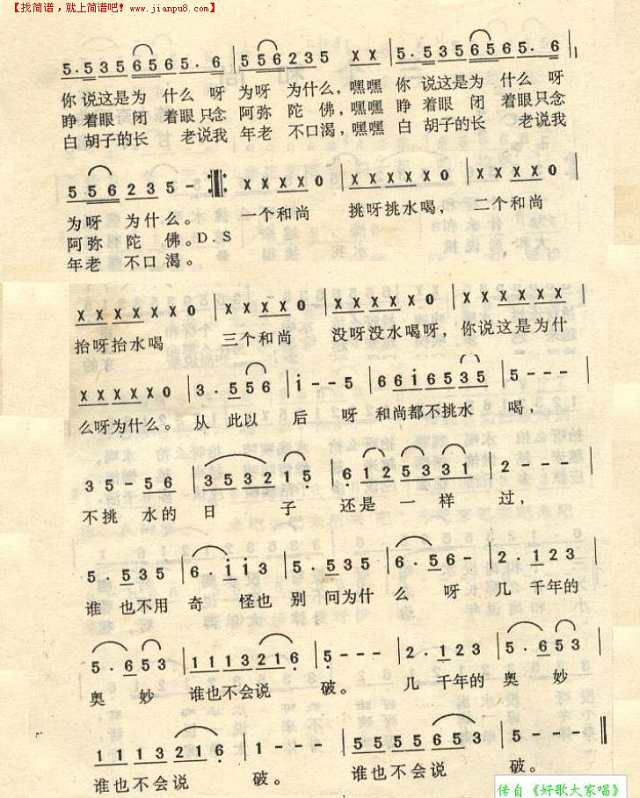 【找简谱，就上简谱吧! www.jianpu8.com】
5.535 6565 5.6 | 556235 x x | 5.535 6565 5.6 ||
你说这是为 什么 呀 为呀 为什么，嘿嘿 你说这是为 什么 呀
睁着眼 闭 着眼只念 阿弥 陀 佛，嘿嘿 睁着眼 闭 着眼只念
白胡子的长 老说我 年老 不口渴，嘿嘿 白胡子的长 老说我
556 235 - :||: xxxxx0 | xxxxx0 | xxxxx0 |
为呀 为什么。 一个和尚 挑呀挑水喝， 二个和尚
阿弥 陀 佛。D.S
年老 不口渴。
xxxxx0 | xxxxx0 | xxxxx0 | xxxxxx |
抬呀抬水喝 三个和尚 没呀没水喝呀， 你说这是为什
xxxxx0 | 3.556 | i--5 | 66i6535 | 5--- |
么呀为什么。 从 此以 后 呀 和尚都不挑水 喝，
35-56 | 35323215 | 6125331 | 2--- |
不挑 水的 日 子 还是 一 样 过，
5.535 | 6.ii3 | 5.535 | 6.56- | 2.123 |
谁 也不用 奇 怪也 别 问为什 么 呀 几 千年的
5.653 | 1113216 | 5--- | 2.123 | 5.653 |
奥 妙 谁也不会说 破。 几 千年的 奥妙
1113216 | 1--- | 5555653 | 5--- ||
谁也不会说 破。 谁也不会说 破。
传自《好歌大家唱》